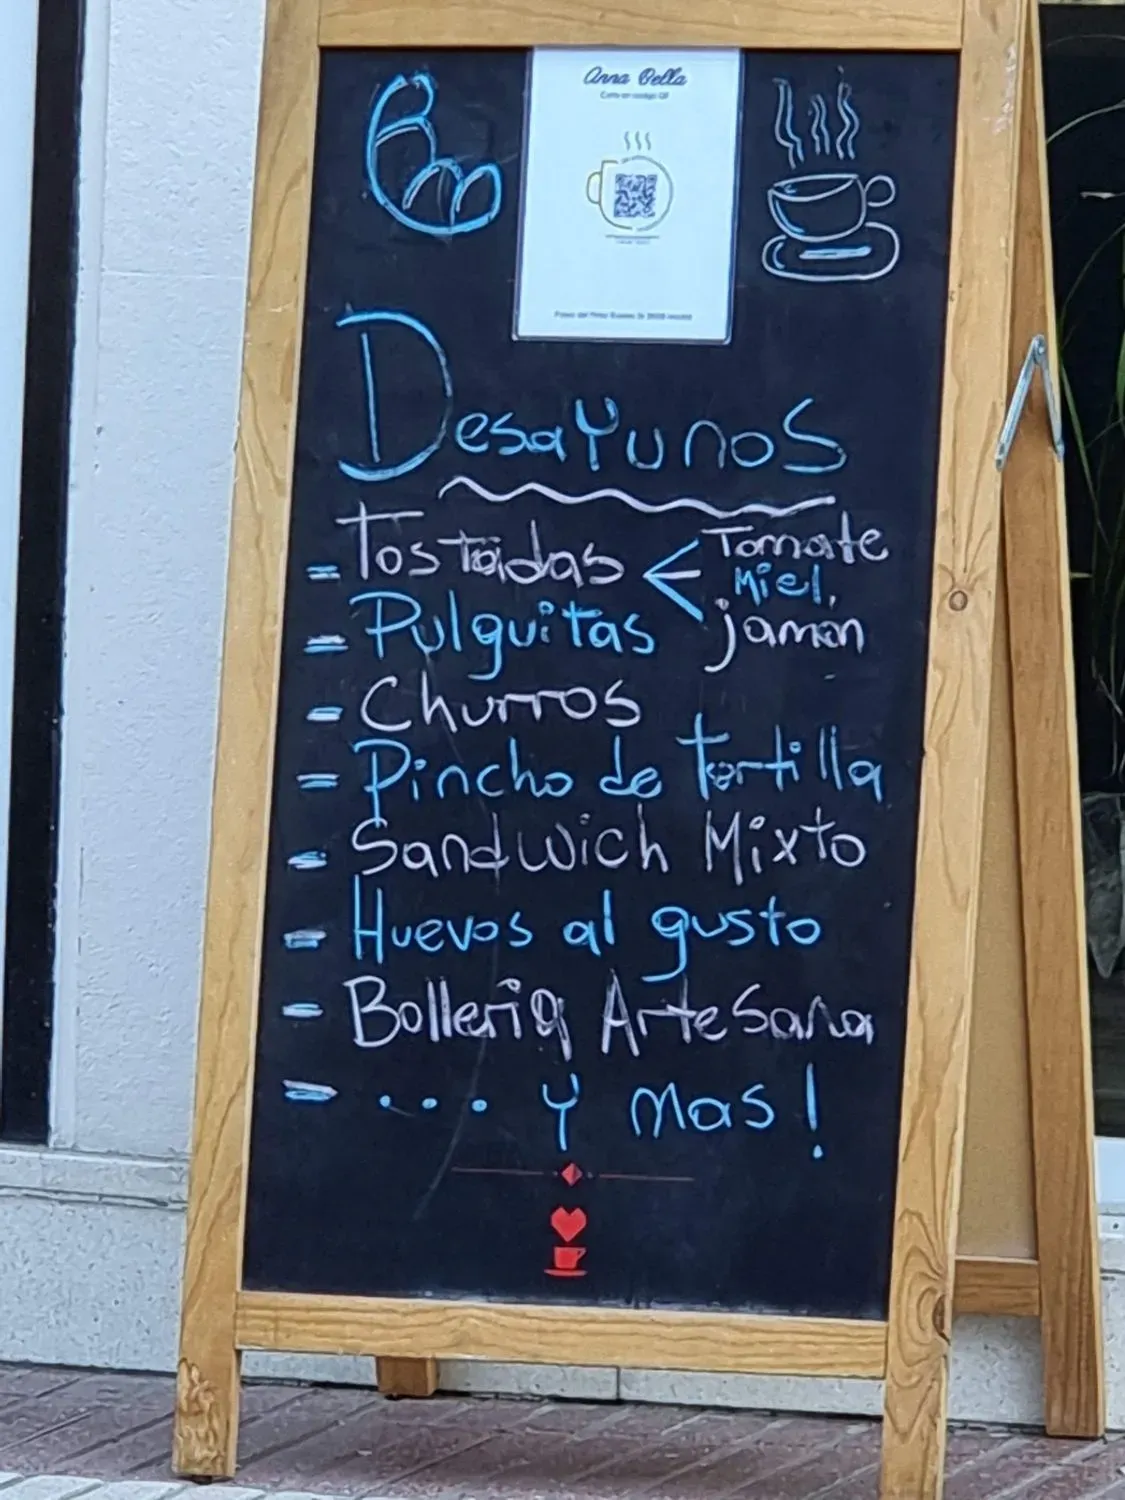 Anna Bella
Carta en código QR
DesaYunos
= Tostadas < Tomate
Miel,
jamon
= Pulguitas
= Churros
= Pincho de tortilla
= Sandwich Mixto
= Huevos al gusto
= Bolleria Artesana
= ... y mas!